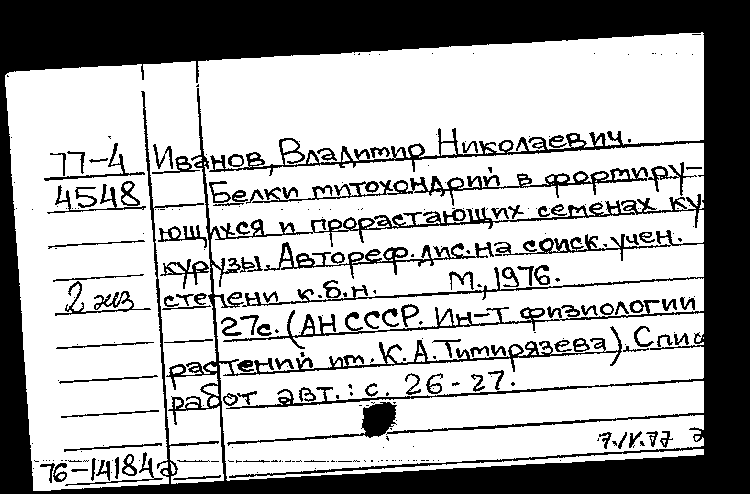 77-4 Иванов, Владимир Николаевич.
4548 Белки митохондрий в формиру-
ющихся и прорастающих семенах ку
курузы. Автореф. дис. на соиск. учен.
2 экз степени к.б.н. М., 1976.
27с. (АН СССР. Ин-т физиологии
растений им. К. А. Тимирязева). Спис
работ авт.: с. 26-27.
7.IV.77
76-14184д